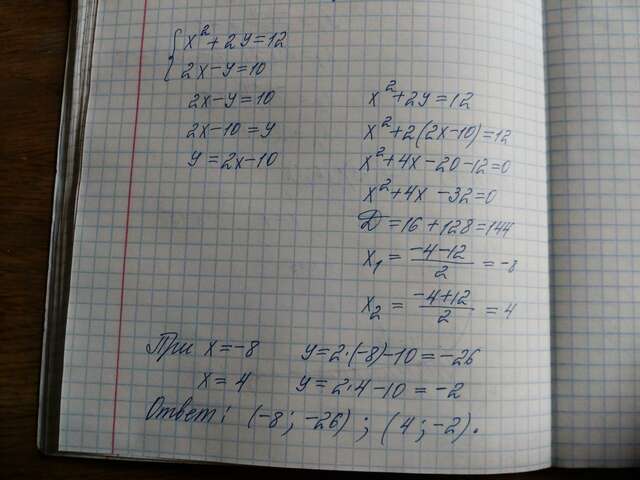 x² + 2y = 12
2x - y = 10
2x - y = 10
2x - 10 = y
y = 2x - 10
x² + 2y = 12
x² + 2(2x - 10) = 12
x² + 4x - 20 - 12 = 0
x² + 4x - 32 = 0
D = 16 + 128 = 144
x₁ = (-4 - 12)/2 = -8
x₂ = (-4 + 12)/2 = 4
При x = -8 y = 2·(-8) - 10 = -26
x = 4 y = 2·4 - 10 = -2
Ответ: (-8; -26); (4; -2).